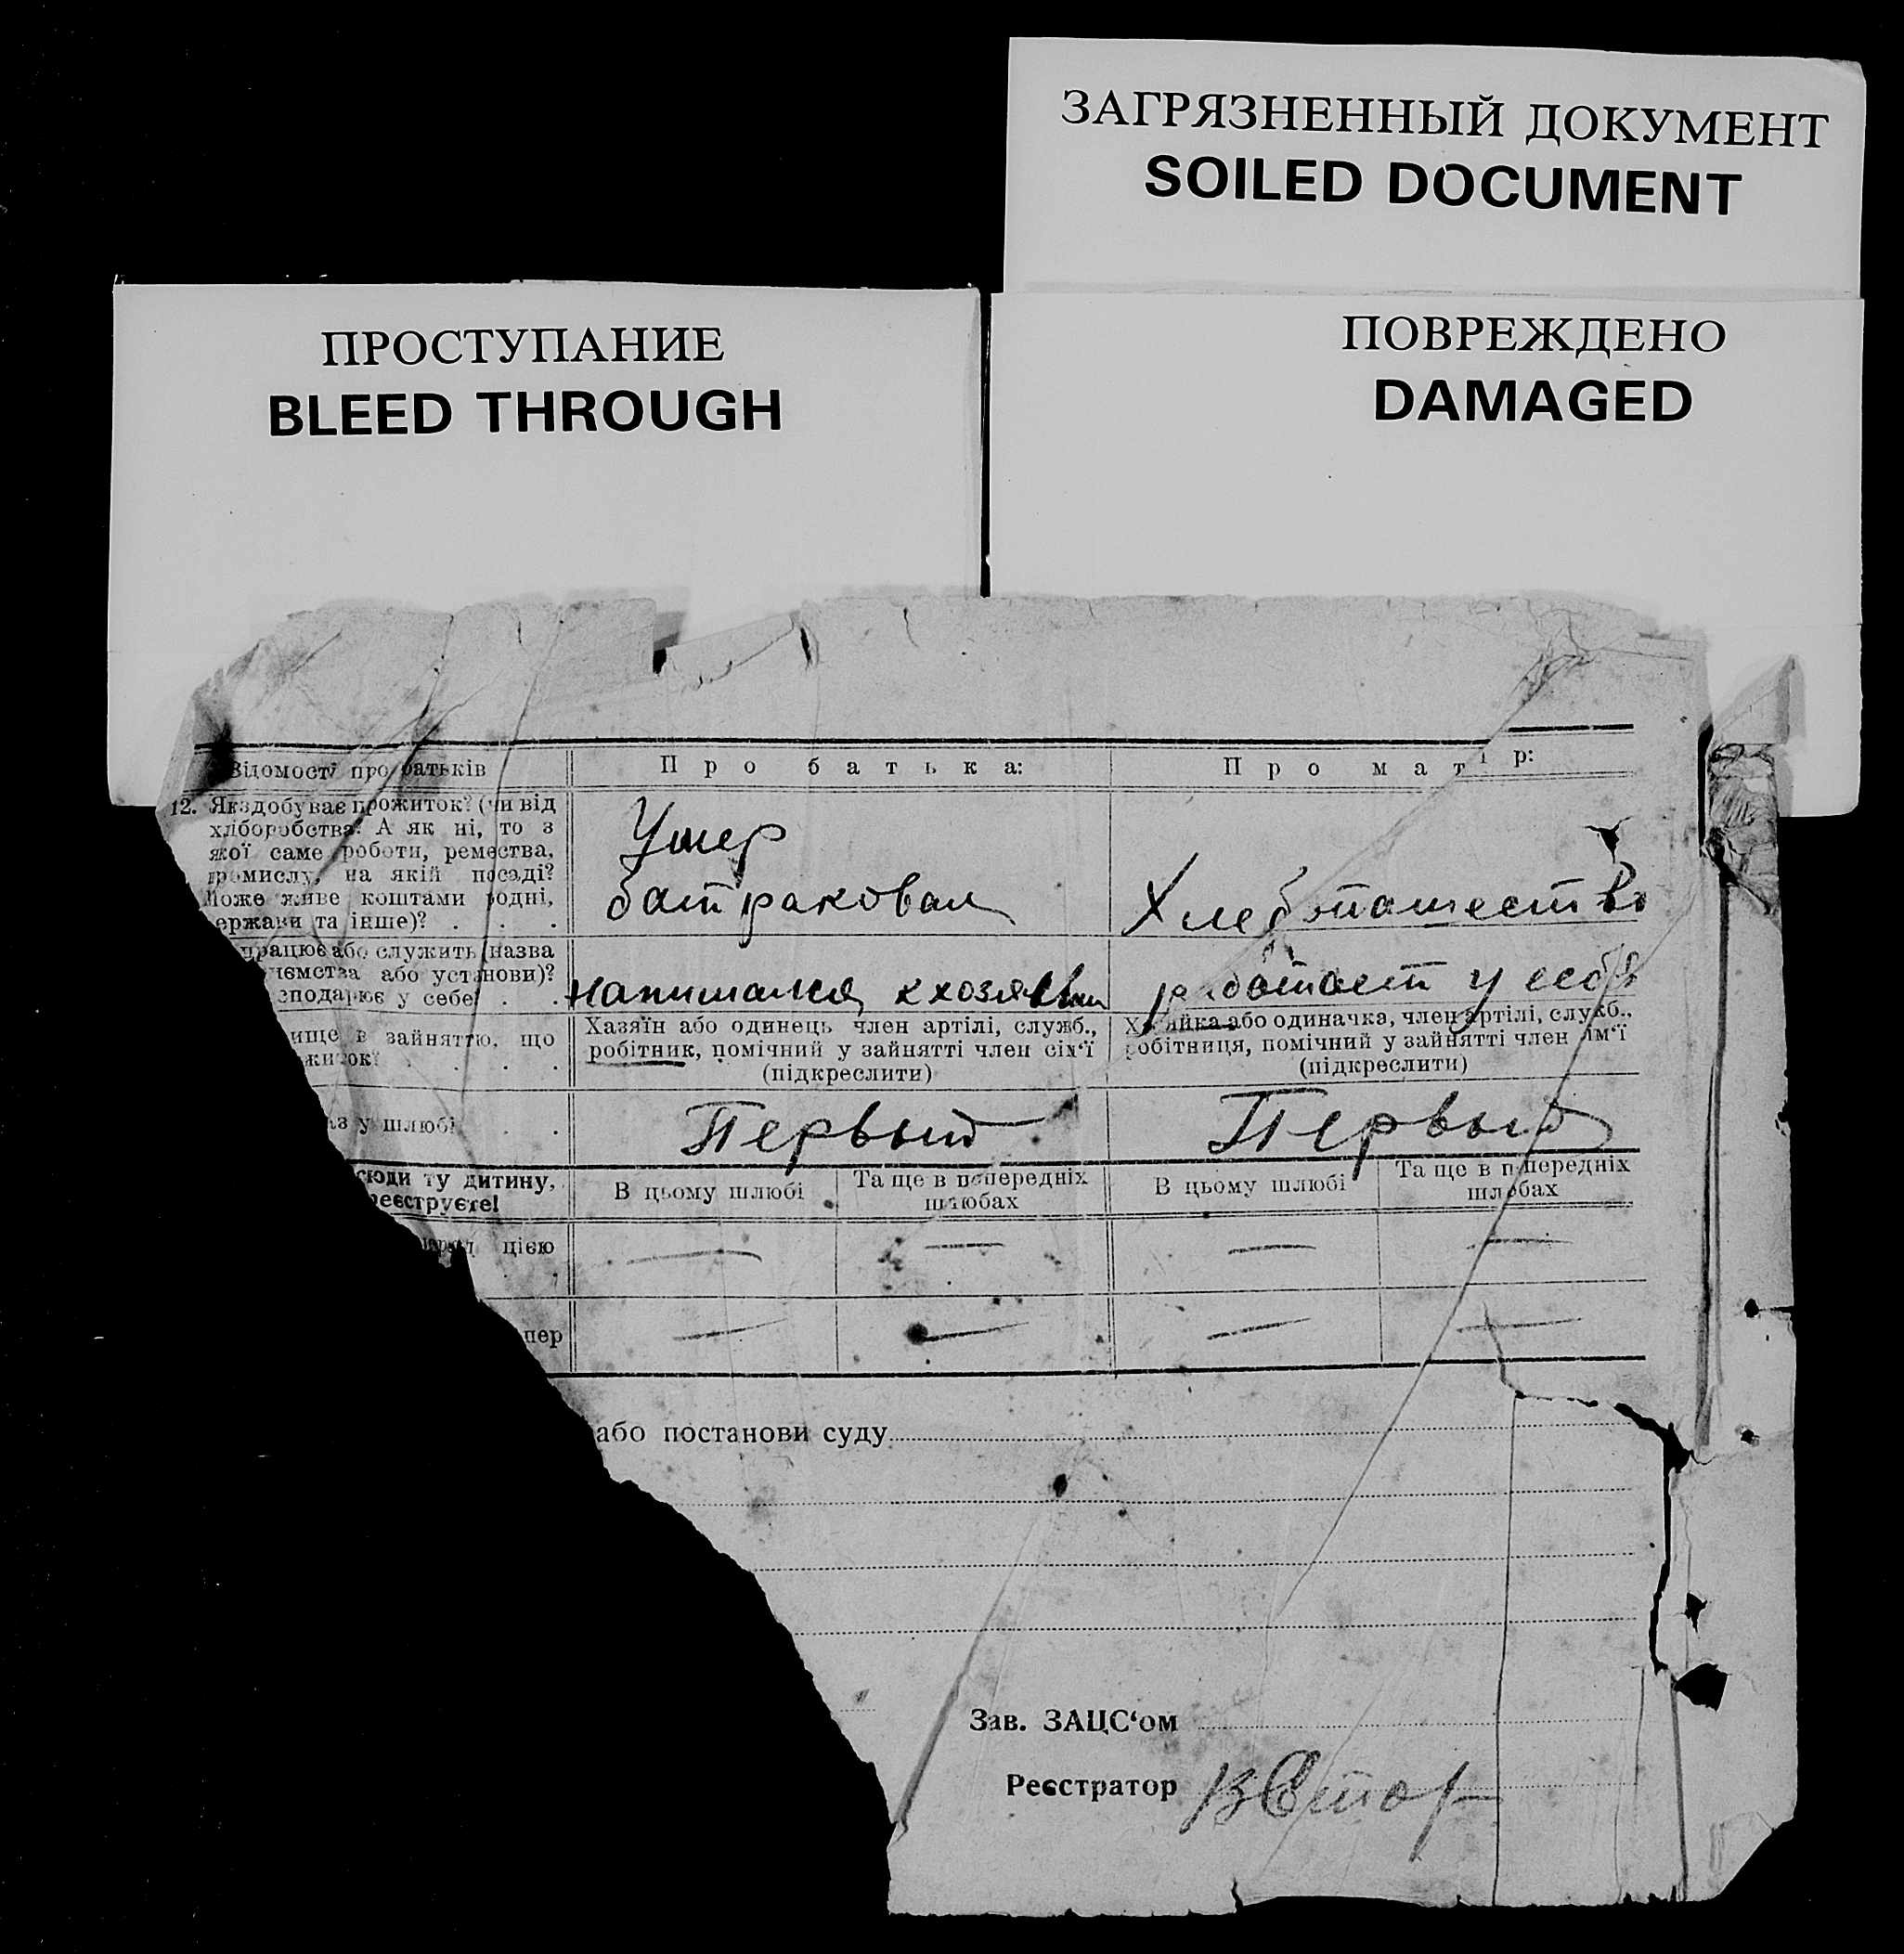 ЗАГРЯЗНЕННЫЙ ДОКУМЕНТ
SOILED DOCUMENT
ПРОСТУПАНИЕ
BLEED THROUGH
ПОВРЕЖДЕНО
DAMAGED
Відомості про батьків
Про батька:
Про матір:
12. Як здобуває прожиток? (чи від
хліборобства? А як ні, то з
якої саме роботи, ремества,
промислу, на якій посаді?
Може живе коштами родні,
ержави та інше)? . . .
Умер
батраковал
Хлебопашество
працює або служить (назва
ємства або установи)?
сподарює у себе . .
нанимался к хозяевам
работает у себя
ище в зайняттю, що
житок? . . . .
Хазяїн або одинець член артілі, служб.,
робітник, помічний у зайнятті член сім'ї
(підкреслити)
Хазяйка або одиначка, член артілі, служб.,
робітниця, помічний у зайнятті член сім'ї
(підкреслити)
аз у шлюбі . .
Первый
Первый
сюди ту дитину,
реєструєте!
В цьому шлюбі
Та ще в попередніх
шлюбах
В цьому шлюбі
Та ще в попередніх
шлюбах
цією
— — — —
пер
— — — —
або постанови суду
Зав. ЗАЦС'ом
Реєстратор